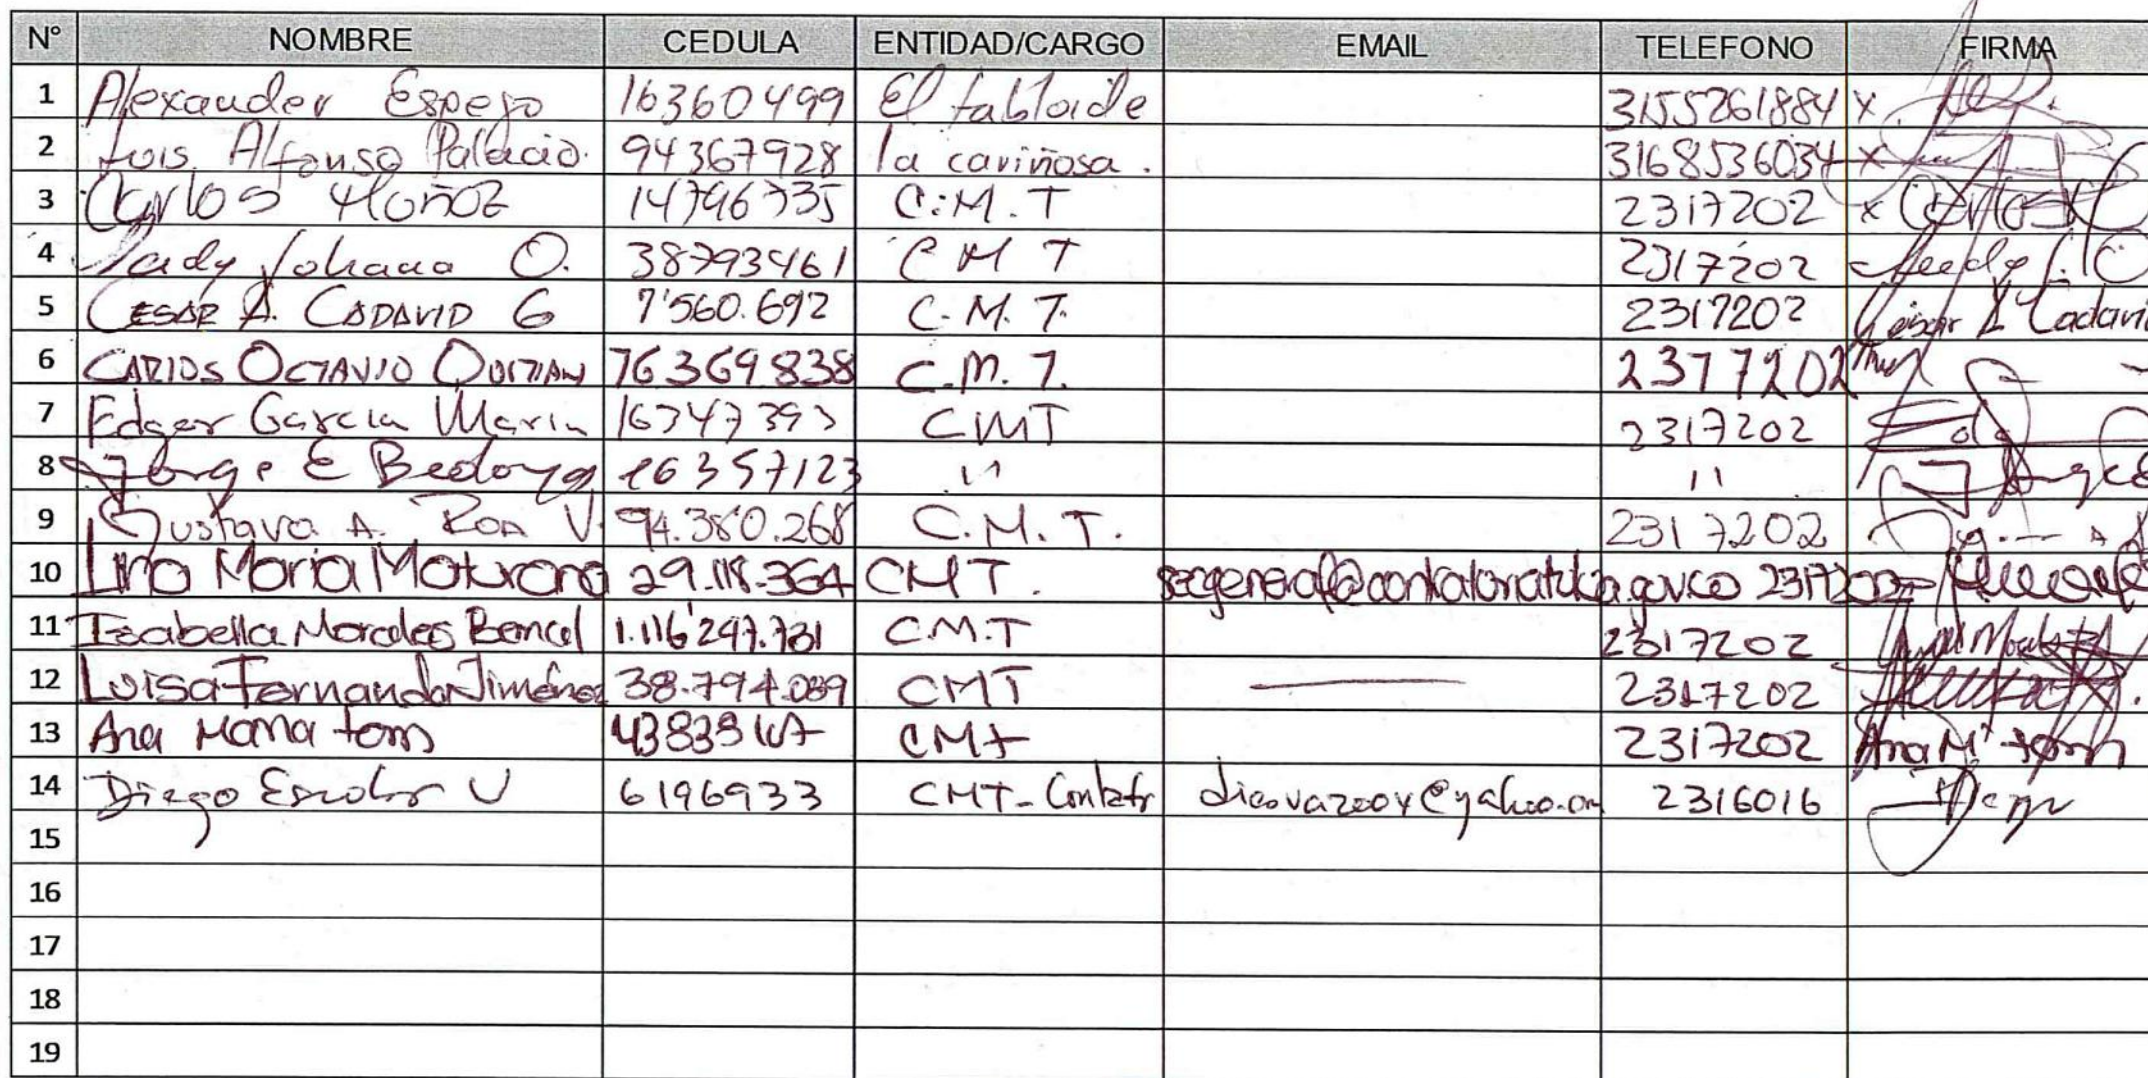 N° NOMBRE CEDULA ENTIDAD/CARGO EMAIL TELEFONO FIRMA
1 Alexander Espejo 16360499 El tabloide 3155261884 x
2 Luis Alfonso Palacio. 94367928 la cariñosa. 3168536034 x
3 Carlos Muñoz 14796735 C.M.T 2317202 x Carlos
4 Lady Johana O. 38793461 C M T 2317202
5 CESAR A. CADAVID G 7'560.692 C.M.T. 2317202 Cesar A Cadavid
6 CARLOS OCTAVIO QUITIAN 16369838 C.M.T. 2317202
7 Edgar Garcia Marin 16347393 CMT 2317202 Edg
8 Jorge E Bedoya 16357123 11 11 Jorge
9 Gustavo A. Roa V. 94.380.268 C.M.T. 2317202
10 Lina Maria Maturana 29.118.364 CMT. secgeneral@contraloriatulua.gov.co 2317202
11 Isabella Morales Bernal 1.116'247.731 C.M.T 2317202
12 Luisa Fernanda Jiménez 38.794.089 CMT 2317202
13 Ana Maria 43839 CMT 2317202 Ana Mª
14 Diego Escobar V 6196933 CMT- 2316016
15
16
17
18
19